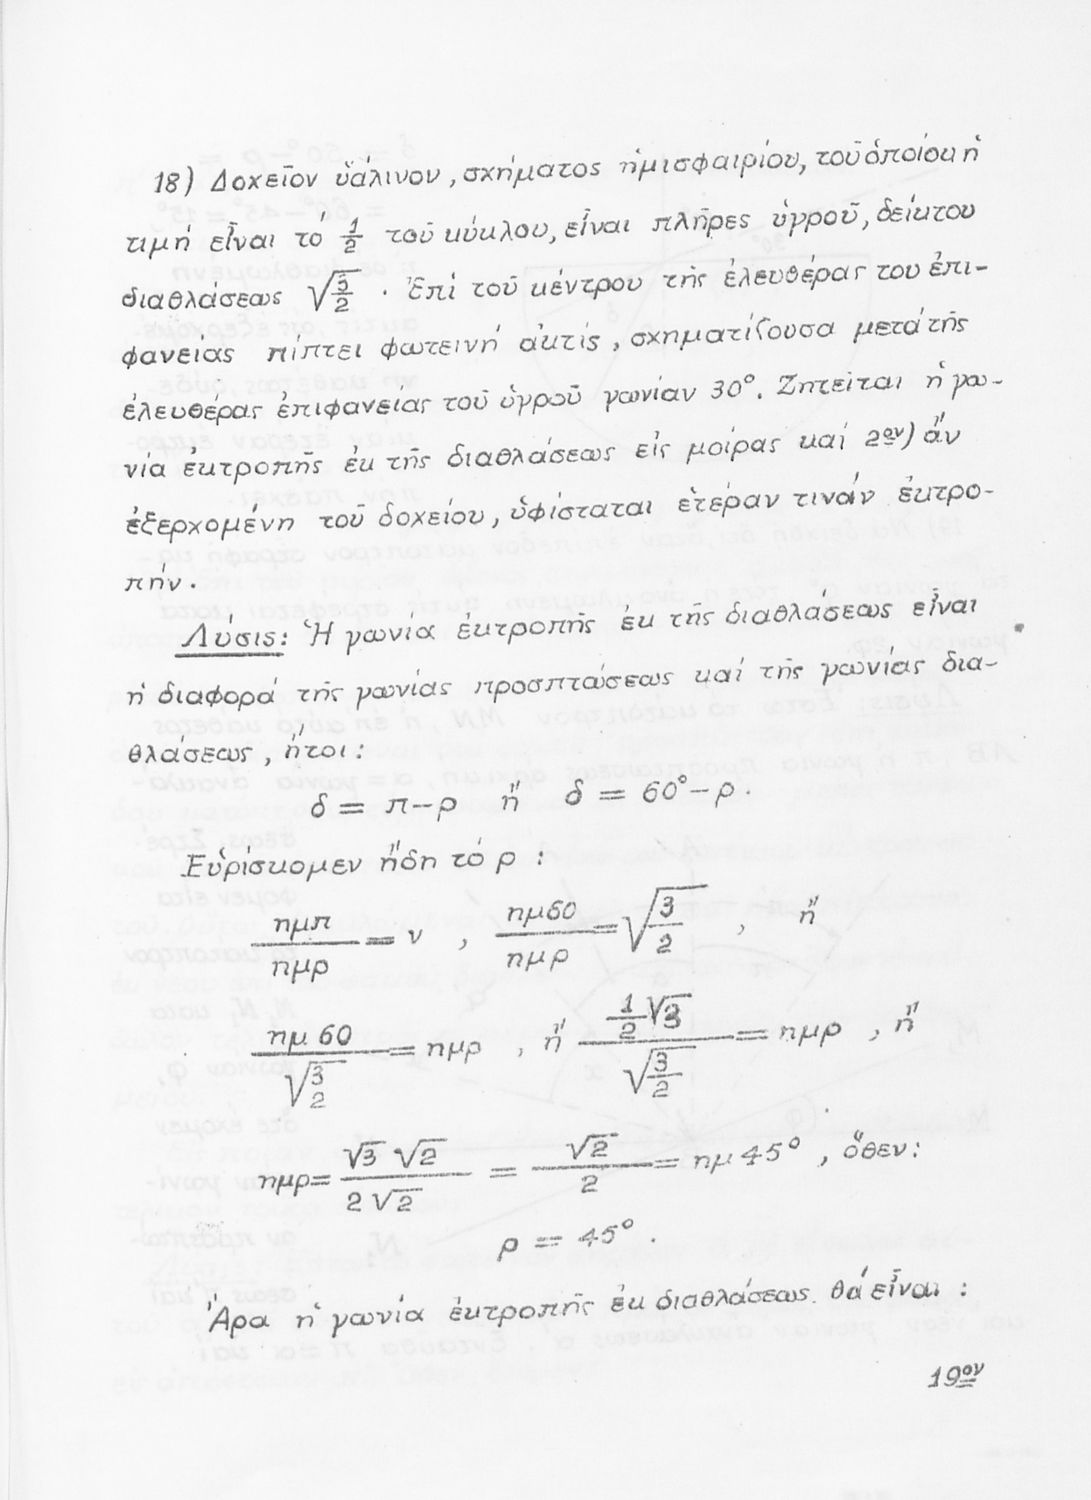 18) Δοχεῖον ὑάλινον, σχήματος ἡμισφαιρίου, τοῦ ὁποίου ἡ
τιμή εἶναι τό 1/2 τοῦ κύκλου, εἶναι πλῆρες ὑγροῦ, δείκτου
διαθλάσεως √3/2 . Ἐπί τοῦ κέντρου τῆς ἐλευθέρας του ἐπι-
φανείας πίπτει φωτεινή ἀκτίς, σχηματίζουσα μετά τῆς
ἐλευθέρας ἐπιφανείας τοῦ ὑγροῦ γωνίαν 30°. Ζητεῖται ἡ γω-
νία ἐκτροπῆς ἐκ τῆς διαθλάσεως εἰς μοίρας καί 2ον) ἄν
ἐξερχομένη τοῦ δοχείου, ὑφίσταται ἑτέραν τινάν ἐκτρο-
πήν.
Λύσις: Ἡ γωνία ἐκτροπῆς ἐκ τῆς διαθλάσεως εἶναι
ἡ διαφορά τῆς γωνίας προσπτώσεως καί τῆς γωνίας δια-
θλάσεως, ἤτοι:
δ = π-ρ ἤ δ = 60°-ρ.
Εὑρίσκομεν ἤδη τό ρ :
ημπ/ημρ = ν , ημ60/ημρ = √3/2 , ἤ
ημ 60/√3/2 = ημρ , ἤ 1/2 √3/√3/2 = ημρ , ἤ
ημρ= √3 √2/2 √2 = √2/2 = ημ 45° , ὅθεν:
ρ = 45° .
Ἄρα ἡ γωνία ἐκτροπῆς ἐκ διαθλάσεως θά εἶναι :
19ον